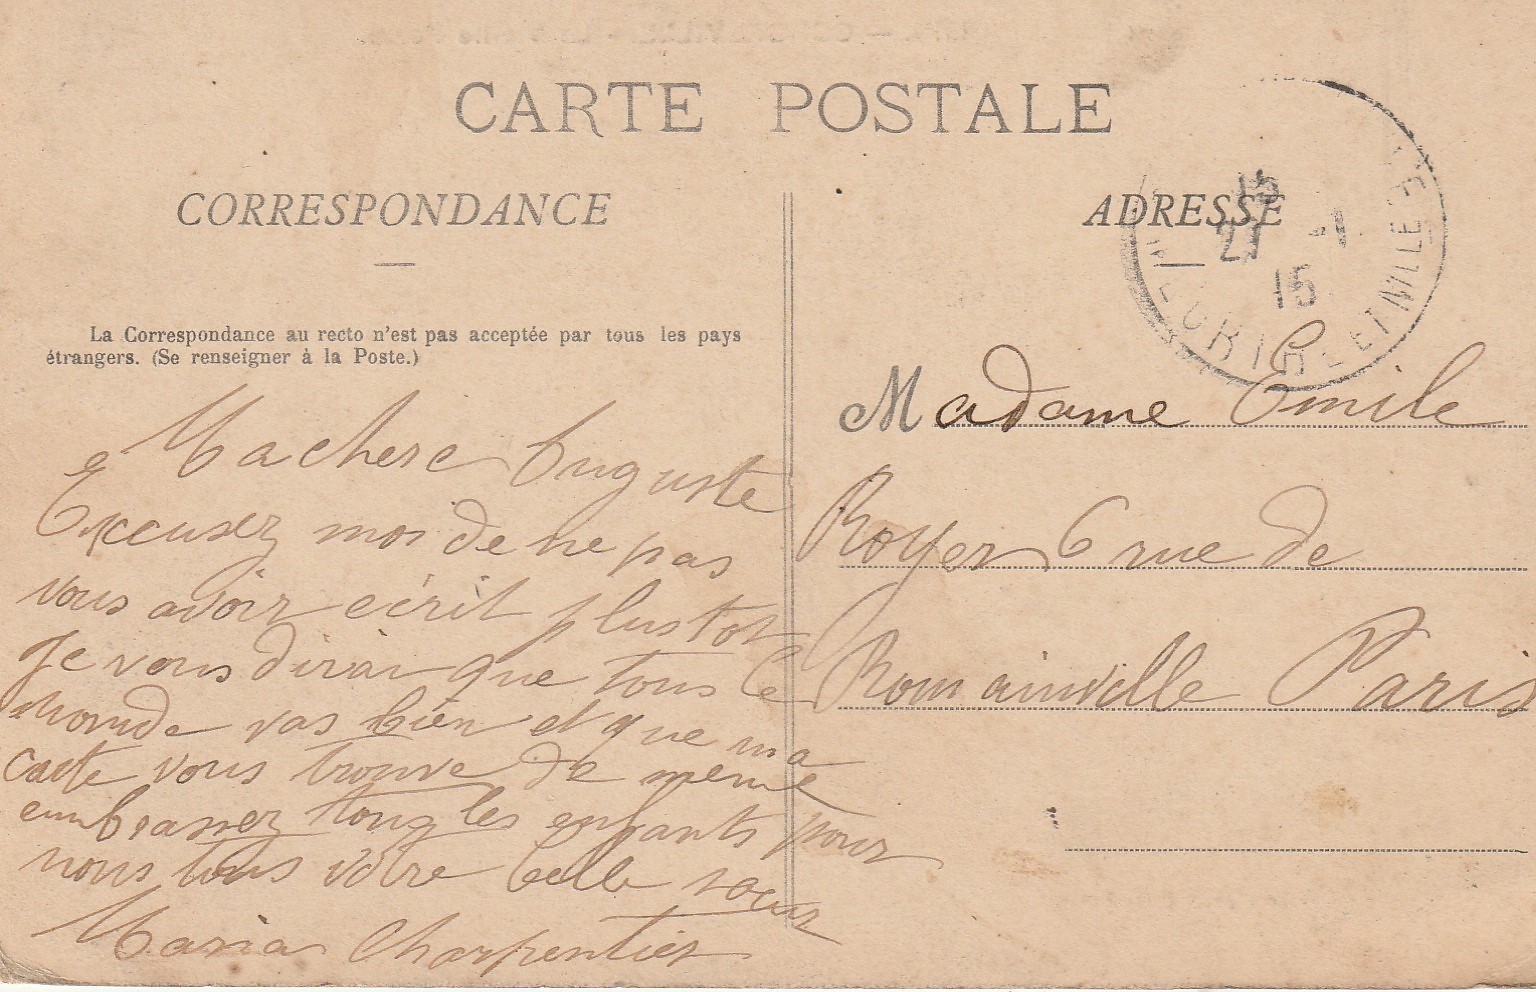 CARTE POSTALE
CORRESPONDANCE
La Correspondance au recto n'est pas acceptée par tous les pays
étrangers. (Se renseigner à la Poste.)
Machere Auguste
Excusez moi de ne pas
vous avoir ecrit plustot
Je vous dirai que tous le
monde vas bien et que ma
carte vous trouve de meme
embrassez tous les enfants pour
nous tous votre belle soeur
Maria Charpentier
ADRESSE
15
21 -1
15
ET NILLE
Madame Emile
Royer 6 rue de
Romainville Paris